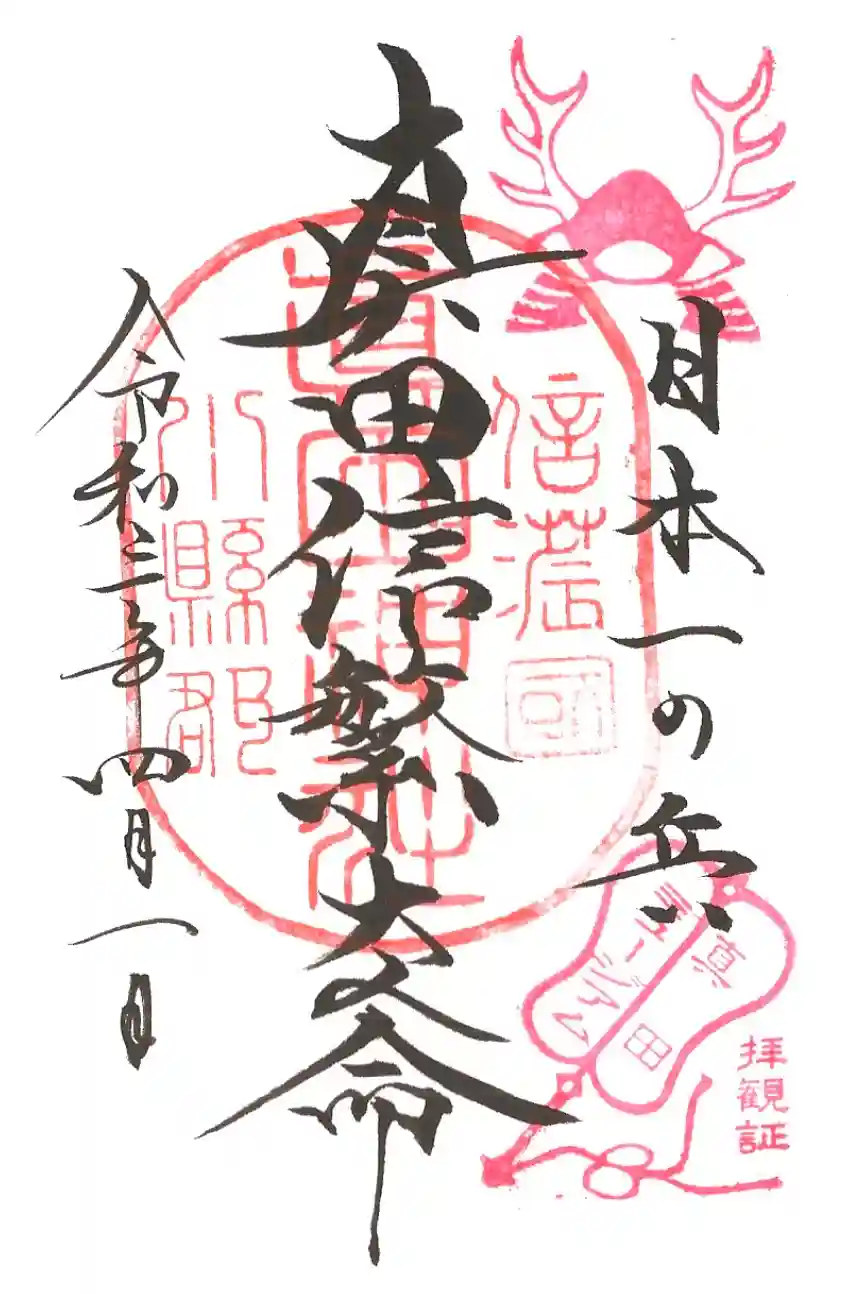 日本一の兵
真田信繁大人命
令和三年四月一日
信濃國
眞田神社
小縣郡
真田
ミュージアム
拝観証